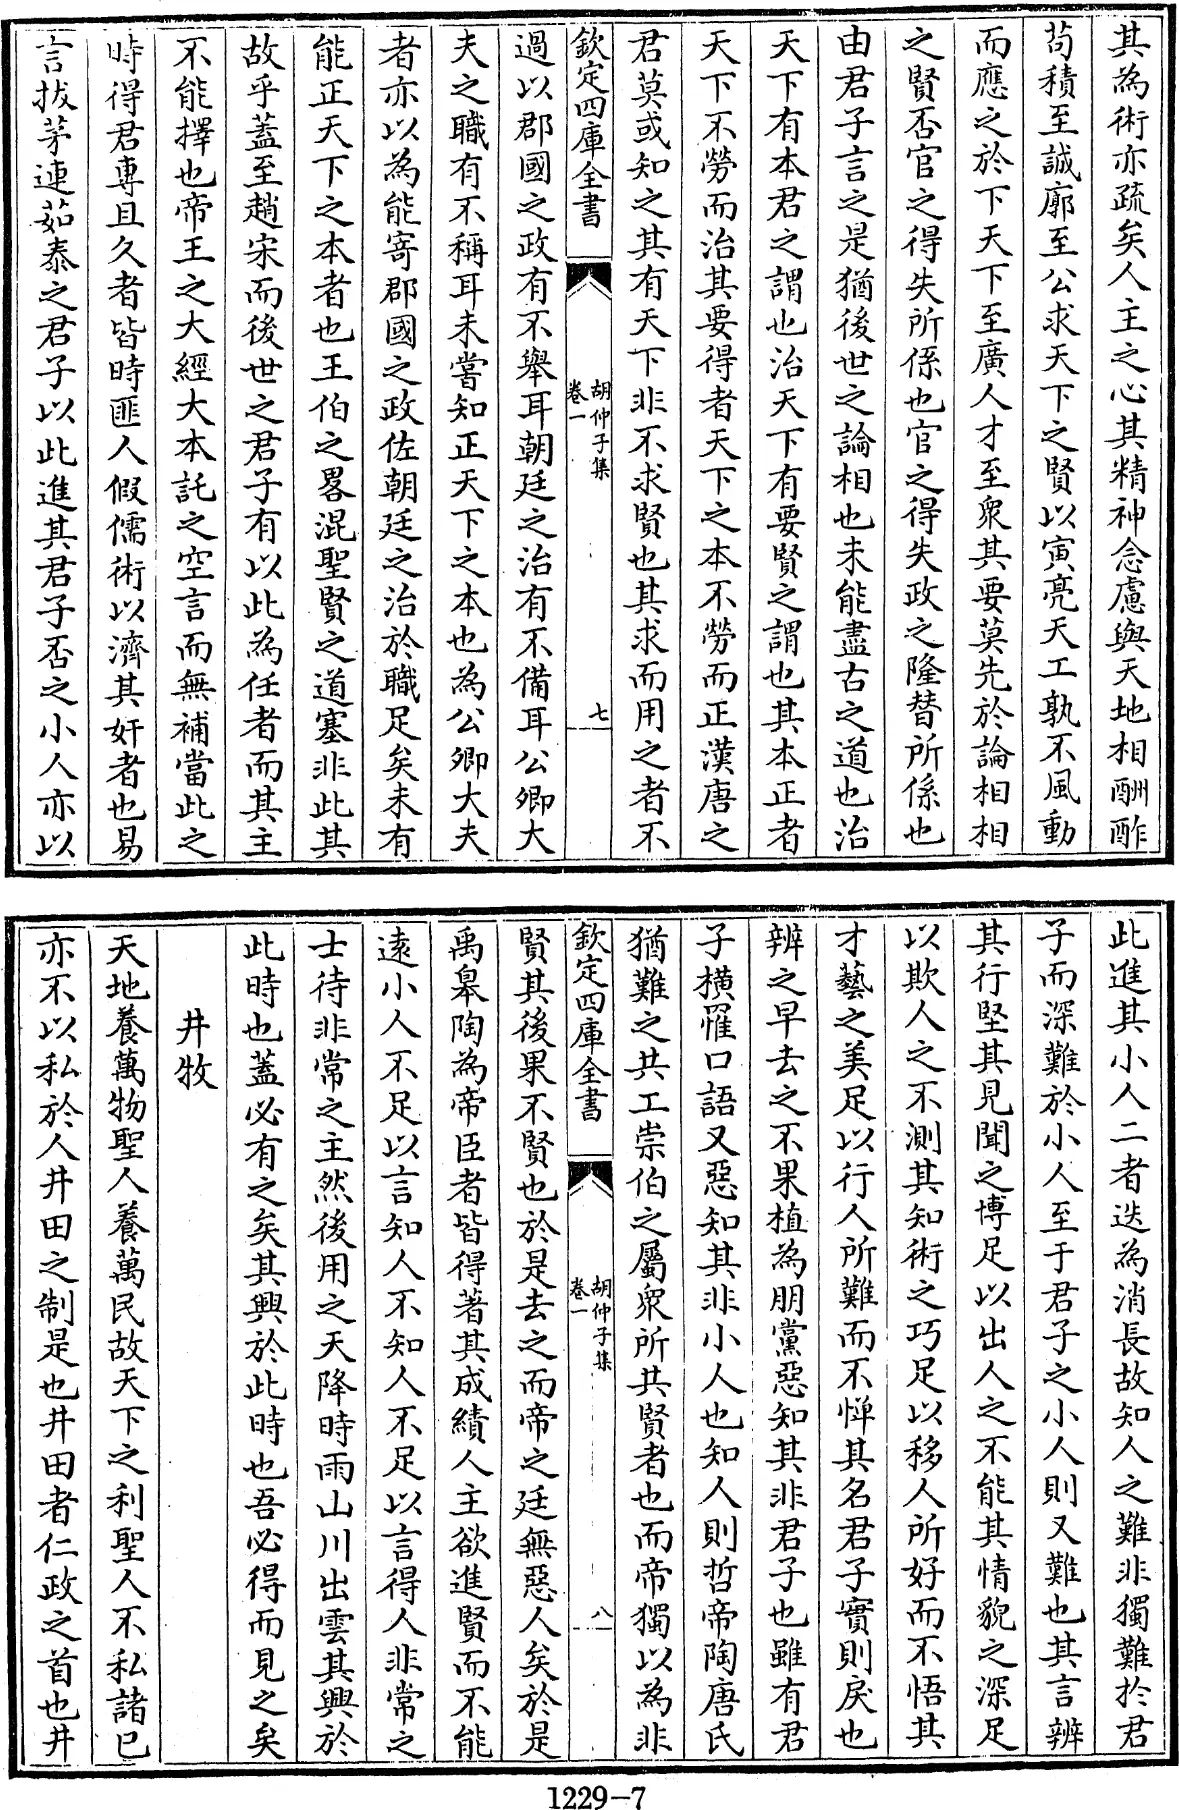 其為術亦疏矣人主之心其精神念慮與天地相酬酢
苟積至誠廓至公求天下之賢以寅亮天工孰不風動
而應之於下天下至廣人才至衆其要莫先於論相相
之賢否官之得失所係也官之得失政之隆替所係也
由君子言之是猶後世之論相也未能盡古之道也治
天下有本君之謂也治天下有要賢之謂也其本正者
天下不勞而治其要得者天下之本不勞而正漢唐之
君莫或知之其有天下非不求賢也其求而用之者不
欽定四庫全書
胡仲子集
卷一
七
過以郡國之政有不舉耳朝廷之治有不備耳公卿大
夫之職有不稱耳未嘗知正天下之本也為公卿大夫
者亦以為能寄郡國之政佐朝廷之治於職足矣未有
能正天下之本者也王伯之畧混聖賢之道塞非此其
故乎蓋至趙宋而後世之君子有以此為任者而其主
不能擇也帝王之大經大本託之空言而無補當此之
時得君專且久者皆時匪人假儒術以濟其奸者也易
言拔茅連茹泰之君子以此進其君子否之小人亦以
此進其小人二者迭為消長故知人之難非獨難於君
子而深難於小人至于君子之小人則又難也其言辨
其行堅其見聞之博足以出人之不能其情貌之深足
以欺人之不測其知術之巧足以移人所好而不悟其
才藝之美足以行人所難而不憚其名君子實則戾也
辨之早去之不果植為朋黨惡知其非君子也雖有君
子橫罹口語又惡知其非小人也知人則哲帝陶唐氏
猶難之共工崇伯之屬衆所共賢者也而帝獨以為非
欽定四庫全書
胡仲子集
卷一
八
賢其後果不賢也於是去之而帝之廷無惡人矣於是
禹皋陶為帝臣者皆得著其成績人主欲進賢而不能
遠小人不足以言知人不知人不足以言得人非常之
士待非常之主然後用之天降時雨山川出雲其興於
此時也蓋必有之矣其興於此時也吾必得而見之矣
井牧
天地養萬物聖人養萬民故天下之利聖人不私諸已
亦不以私於人井田之制是也井田者仁政之首也井
1229-7